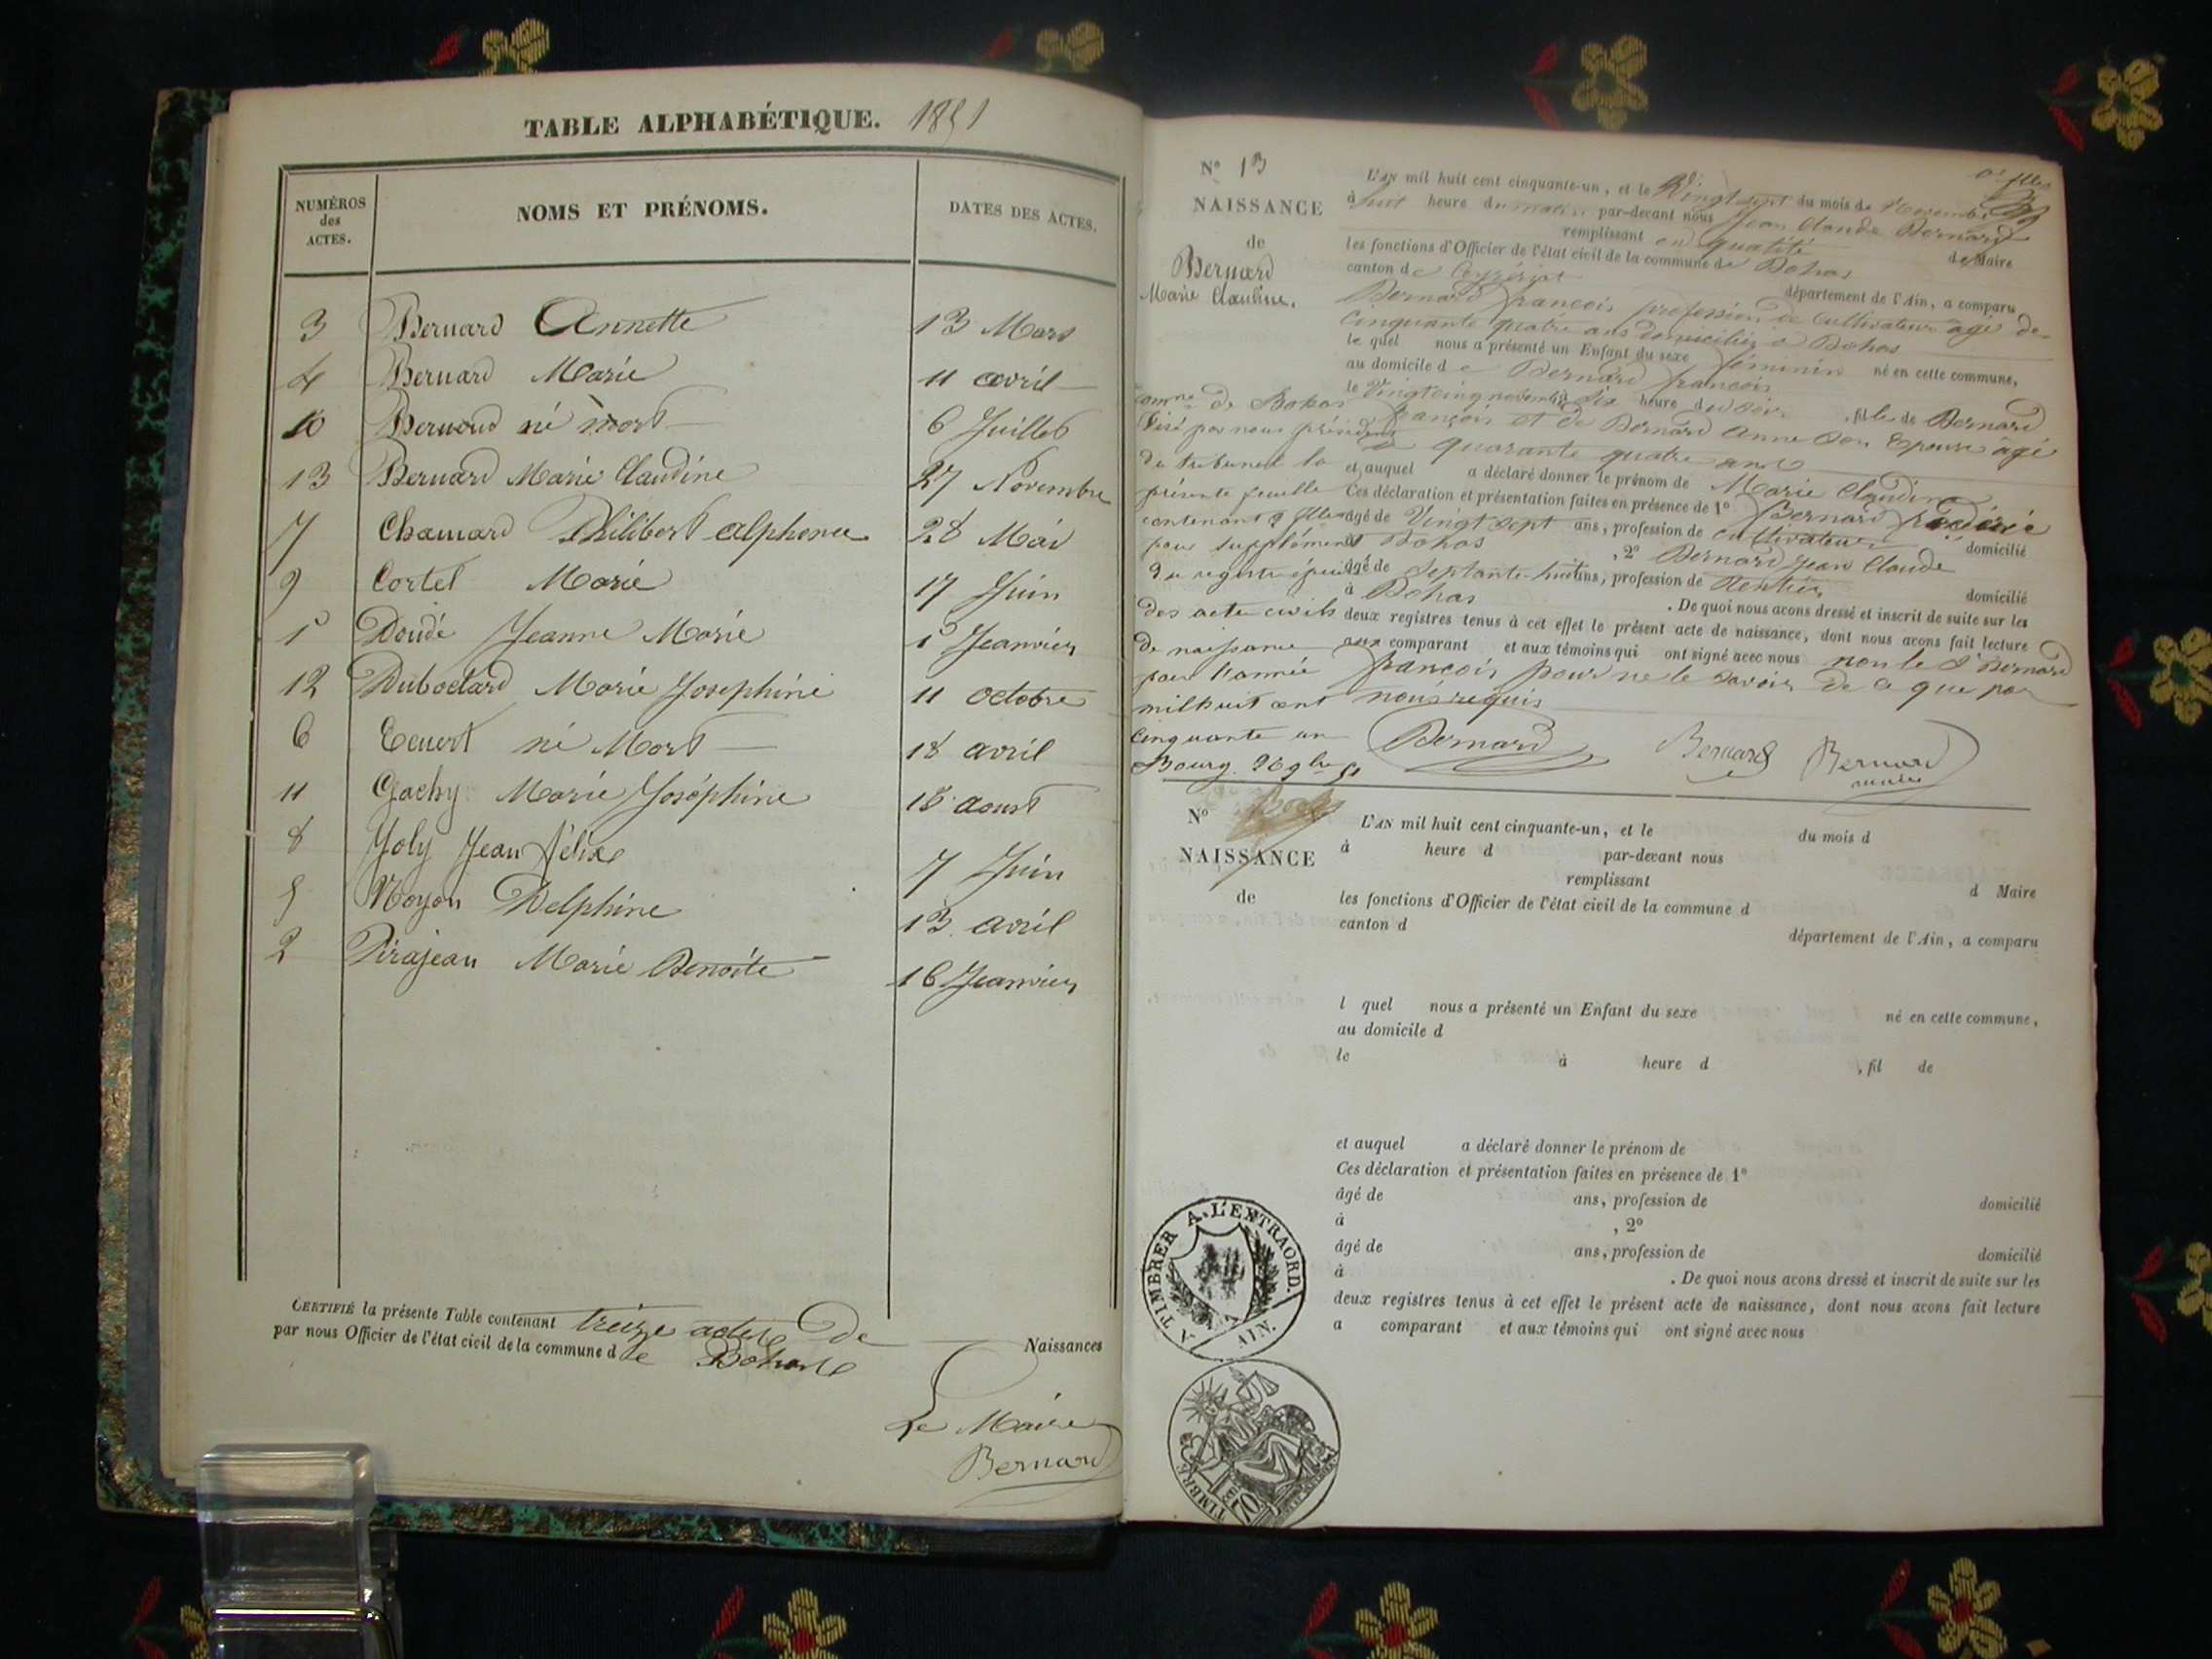 TABLE ALPHABÉTIQUE. 1851
NUMÉROS des ACTES. NOMS ET PRÉNOMS. DATES DES ACTES.
3 Bernard Annette 13 Mars
4 Bernard Marie 11 avril
10 Bernoud né mort 6 Juillet
13 Bernard Marie Claudine 27 Novembre
7 Chamard Philibert alphonse 28 Mai
9 Cortel Marie 17 Juin
1 Doudé Jeanne Marie 1 Jeanvier
12 Duboclard Marie Josephine 11 octobre
6 né Mort 18 avril
11 Gachy Marie Joséphine 18 aoust
8 Joly Jean félix 7 Juin
5 Noyon Delphine 13 avril
2 Pirajean Marie Benoite 16 Jeanvier
CERTIFIÉ la présente Table contenant treize actes de Naissances
par nous Officier de l'état civil de la commune de Bohas
Le Maire
Bernard
N° 13
NAISSANCE
de
Bernard
Marie Claudine.
L'AN mil huit cent cinquante-un, et le Vingt sept du mois de Novembre
à huit heure du matin par-devant nous Jean Claude Bernard
remplissant en qualité de Maire
les fonctions d'Officier de l'état civil de la commune de Bohas
canton de Ceyzériat département de l'Ain, a comparu
Bernard françois profession de Cultivateur agé de
Cinquante quatre ans domicilié a Bohas
le quel nous a présenté un Enfant du sexe féminin né en cette commune,
au domicile de Bernard françois
le Vingt cinq novembre à Six heure du soir, fille de Bernard
françois et de Bernard Anne Son Epouse agé
de quarante quatre ans
et auquel a déclaré donner le prénom de Marie Claudine
Ces déclaration et présentation faites en présence de 1° Bernard frédéric
âgé de Vingt sept ans, profession de cultivateur domicilié
à Bohas, 2° Bernard Jean Claude
âgé de Septante-huit ans, profession de Rentier domicilié
à Bohas. De quoi nous avons dressé et inscrit de suite sur les
deux registres tenus à cet effet le présent acte de naissance, dont nous avons fait lecture
aux comparant et aux témoins qui ont signé avec nous non le d Bernard
françois pour ne le savoir de ce que par
nous requis
comne de Bohas
Visé par nous président
du tribunal la
présente feuille
contenant 9
pour supplément
du registre
des acte civils
de naissance
pour l'année
mil huit cent
cinquante un
Bourg 26 9bre 51
Bernard Bernard Bernard
maire
N°
NAISSANCE
de
L'AN mil huit cent cinquante-un, et le du mois d
à heure d par-devant nous
remplissant d Maire
les fonctions d'Officier de l'état civil de la commune d
canton d département de l'Ain, a comparu
l quel nous a présenté un Enfant du sexe né en cette commune,
au domicile d
le à heure d , fil de
et auquel a déclaré donner le prénom de
Ces déclaration et présentation faites en présence de 1°
âgé de ans, profession de domicilié
à , 2°
âgé de ans, profession de domicilié
à . De quoi nous avons dressé et inscrit de suite sur les
deux registres tenus à cet effet le présent acte de naissance, dont nous avons fait lecture
a comparant et aux témoins qui ont signé avec nous
A TIMBRER A L'EXTRAORD.
AIN.
TIMBRE
70